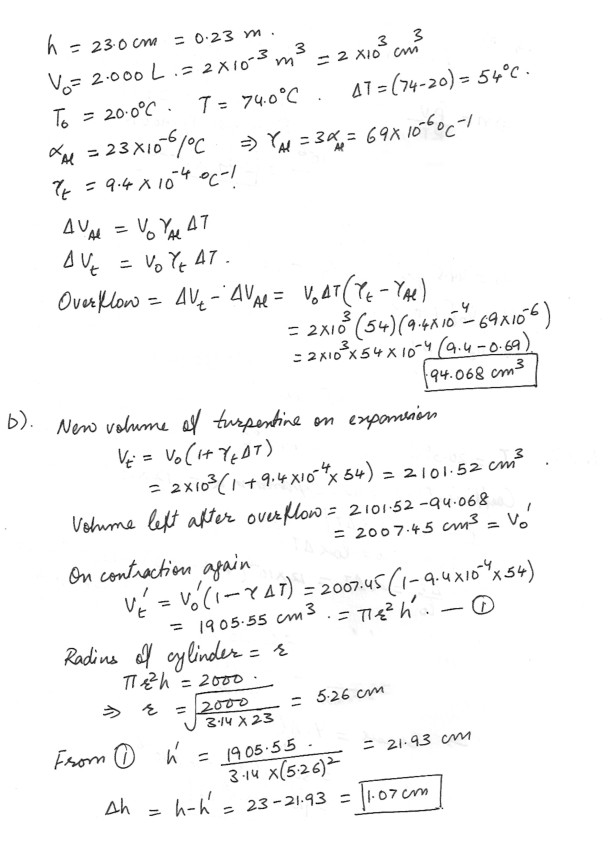 h = 23.0 cm = 0.23 m.
V₀ = 2.000 L. = 2×10⁻³ m³ = 2×10³ cm³
T₀ = 20.0°C. T = 74.0°C. ΔT = (74-20) = 54°C.
α_Al = 23×10⁻⁶/°C ⇒ γ_Al = 3α_Al = 69×10⁻⁶ °C⁻¹
γ_t = 9.4×10⁻⁴ °C⁻¹.
ΔV_Al = V₀ γ_Al ΔT
ΔV_t = V₀ γ_t ΔT.
Overflow = ΔV_t - ΔV_Al = V₀ ΔT (γ_t - γ_Al)
= 2×10³ (54) (9.4×10⁻⁴ - 69×10⁻⁶)
= 2×10³ × 54 × 10⁻⁴ (9.4 - 0.69)
94.068 cm³
b). New volume of turpentine on expansion
V_t = V₀ (1 + γ_t ΔT)
= 2×10³ (1 + 9.4×10⁻⁴ × 54) = 2101.52 cm³.
Volume left after overflow = 2101.52 - 94.068
= 2007.45 cm³ = V₀'
On contraction again
V_t' = V₀' (1 - γ ΔT) = 2007.45 (1 - 9.4×10⁻⁴ × 54)
= 1905.55 cm³. = πr²h'. — ①
Radius of cylinder = r
πr²h = 2000.
⇒ r = √(2000 / 3.14 × 23) = 5.26 cm
From ① h' = 1905.55 / 3.14 × (5.26)² = 21.93 cm
Δh = h - h' = 23 - 21.93 = 1.07 cm